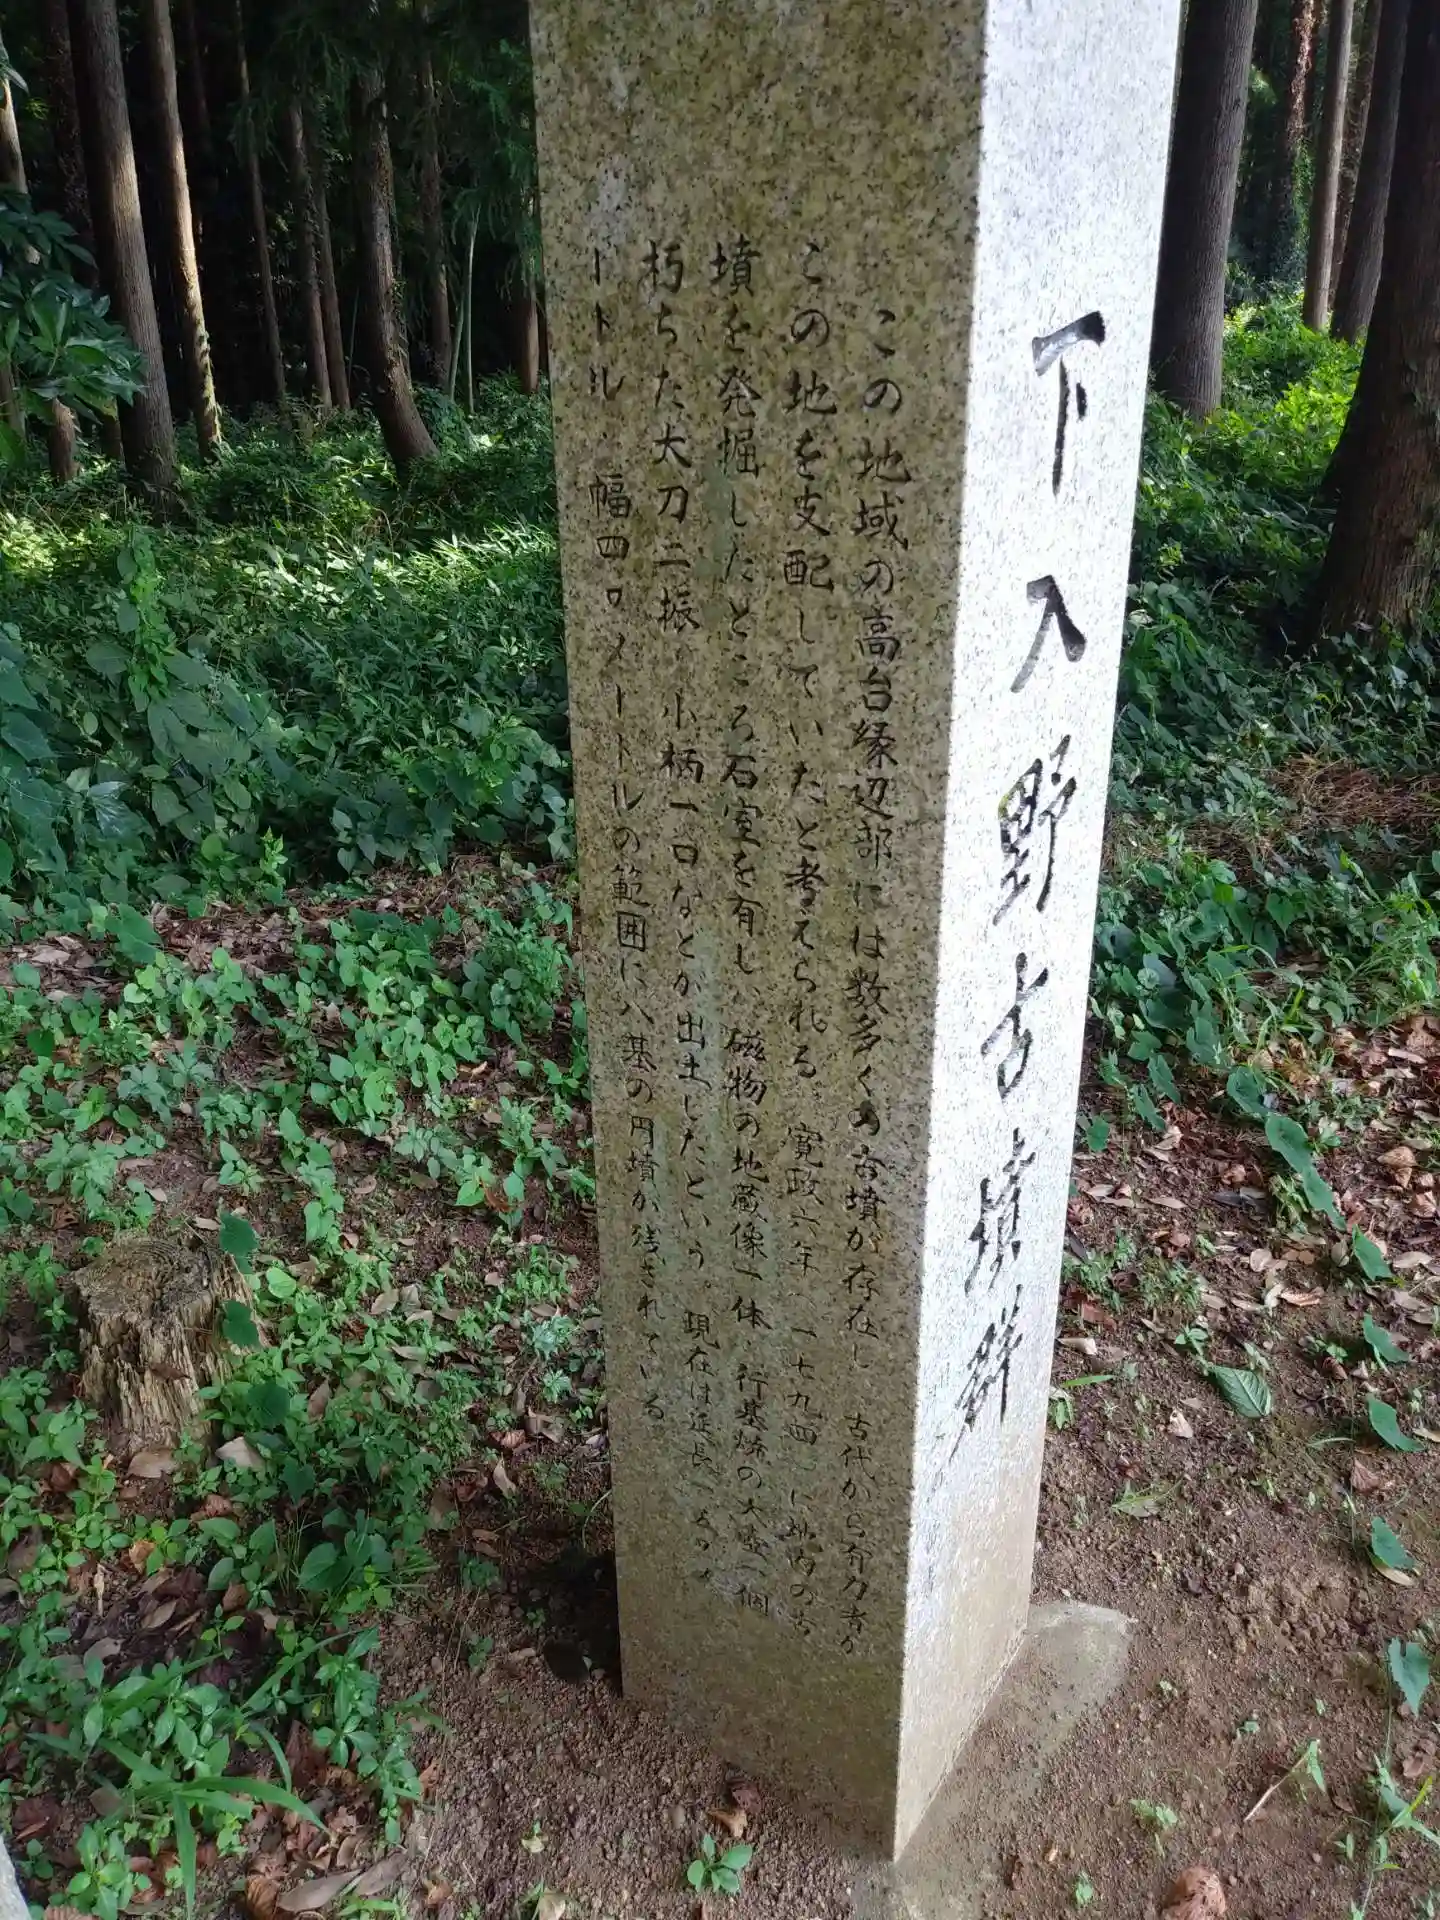 下入野古墳群
この地域の高台縁辺部には数多くの古墳が存在し 古代から有力者が
この地を支配していたと考えられる 寛政六年 一七九四 に地内の古
墳を発掘したところ石室を有し、磁物の地蔵像一体・行基焼の大壺一個
朽ちた大刀二振・小柄一口などが出土したという 現在は延長一
ートル・幅四〇メートルの範囲に八基の円墳が残されている